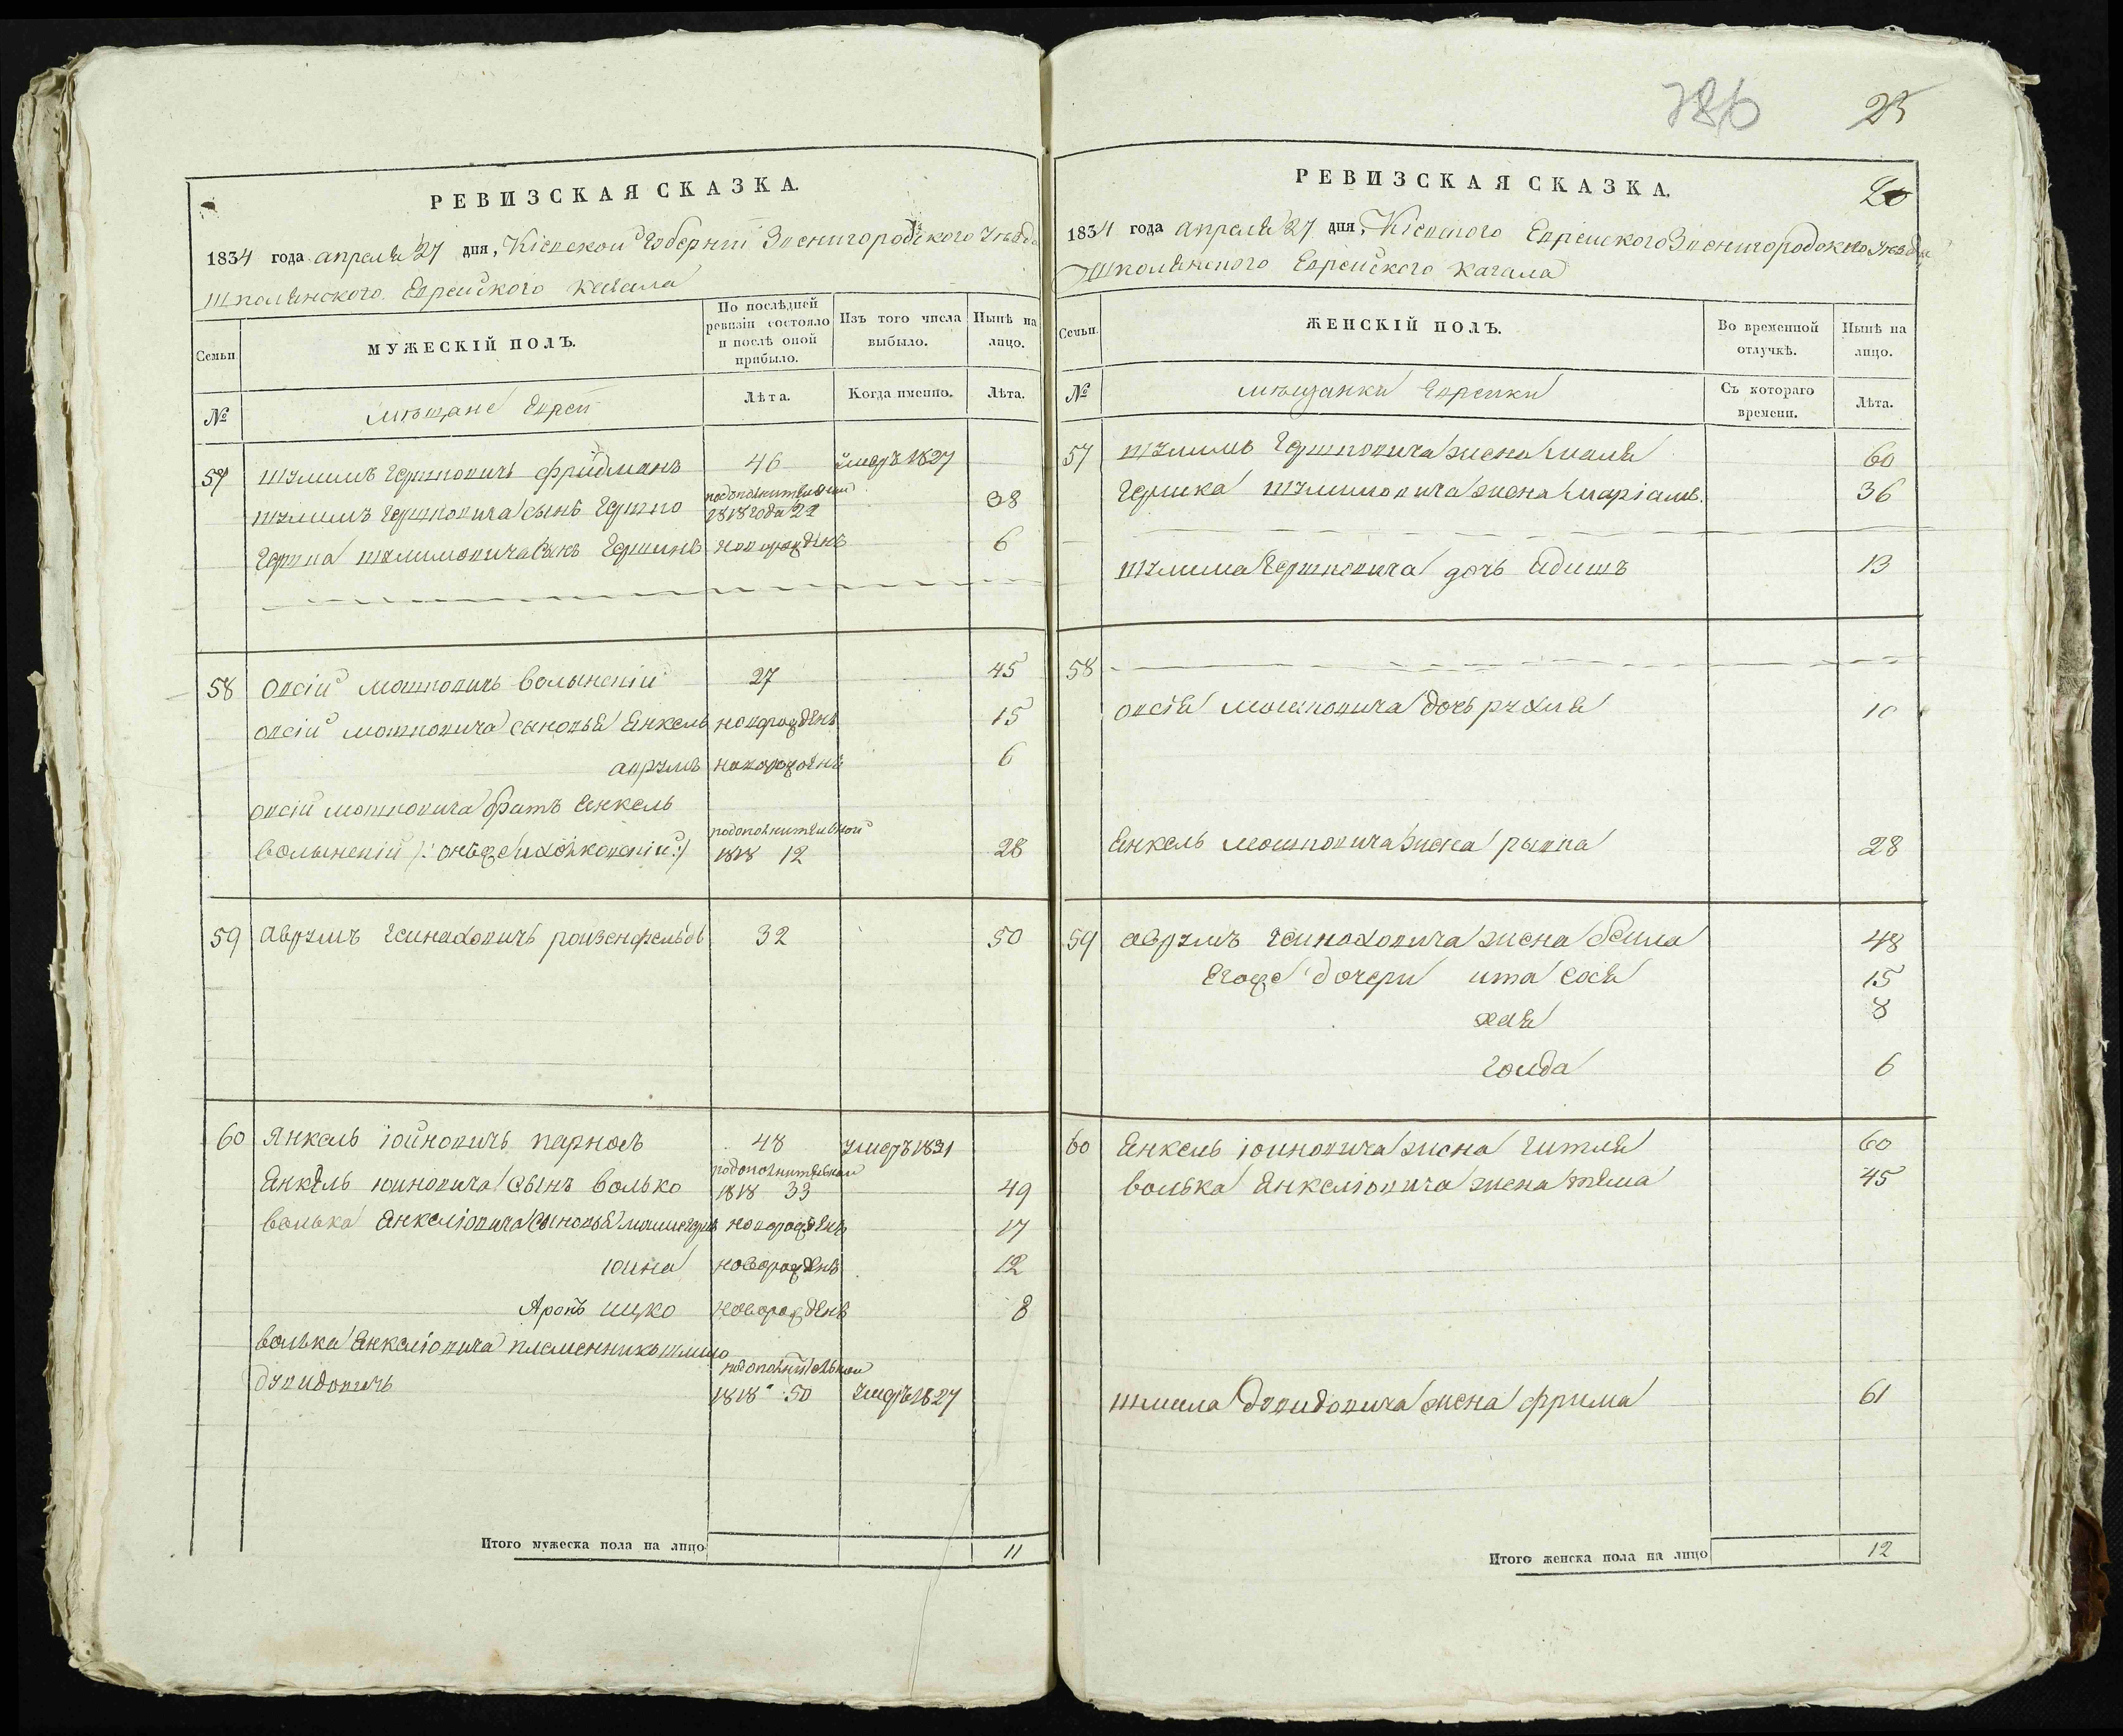 РЕВИЗСКАЯ СКАЗКА.
1834 года апреля 27 дня, Кіевской Губерніи Звенигородского Уѣзда
Шполянского Еврейского Кагала
Семьи
МУЖЕСКІЙ ПОЛЪ.
По послѣдней ревизіи состояло и послѣ оной прибыло.
Изъ того числа выбыло.
Нынѣ на лицо.
№
мѣщане Евреи
Лѣта.
Когда именно.
Лѣта.
57 Шулимъ Гершковичъ Фридманъ 46 умеръ 1827
Шулимъ Гершковича сынъ Гершко подополнительной 1818 года 22 38
новорожденъ 6
58 Овсій Мошковичъ Волынскій 27 45
Овсій Мошковича сыновья Янкель новорожденъ 15
аврумъ новорожденъ 6
Овсій Мошковича братъ Янкель
Волынскій подополнительной 1818 12 28
59 Аврумъ Гейнаховичъ Ройзенфельдъ 32 50
60 Янкель Іойновичъ 48 умеръ 1831
Янкель Іойновича сынъ Волько подополнительной 1818 33 49
Волька Янкеліовича сыновья новорожденъ 17
Іойна новорожденъ 12
Аронъ Ицко новорожденъ 8
Волька Янкеліовича племянникъ Шмило
Дувидовичъ подополнительной 1818 50 умеръ 1827
Итого мужеска пола на лицо 11
786 25
РЕВИЗСКАЯ СКАЗКА.
1834 года апреля 27 дня, Еврейского Звенигородского Уѣзда
Шполянского Еврейского Кагала
Семьи.
ЖЕНСКІЙ ПОЛЪ.
Во временной отлучкѣ.
Нынѣ на лицо.
№
мѣщанки Еврейки
Съ котораго времени.
Лѣта.
57 Шулимъ Гершковича жена Маля 60
Гершка Шулимовича жена Маріамъ. 36
Шулима Гершковича дочь 13
58
Овсія Мошковича дочь Рухля 10
Янкель Мошковича жена Рывка 28
59 Аврумъ Гейнаховича жена Бейла 48
Егоже дочери Ита Сося 15
Хая 8
Голда 6
60 Янкель Іойновича жена Гитля 60
Волька Янкеліовича жена 45
Шмила Дувидовича жена Фрима 61
Итого женска пола на лицо 12